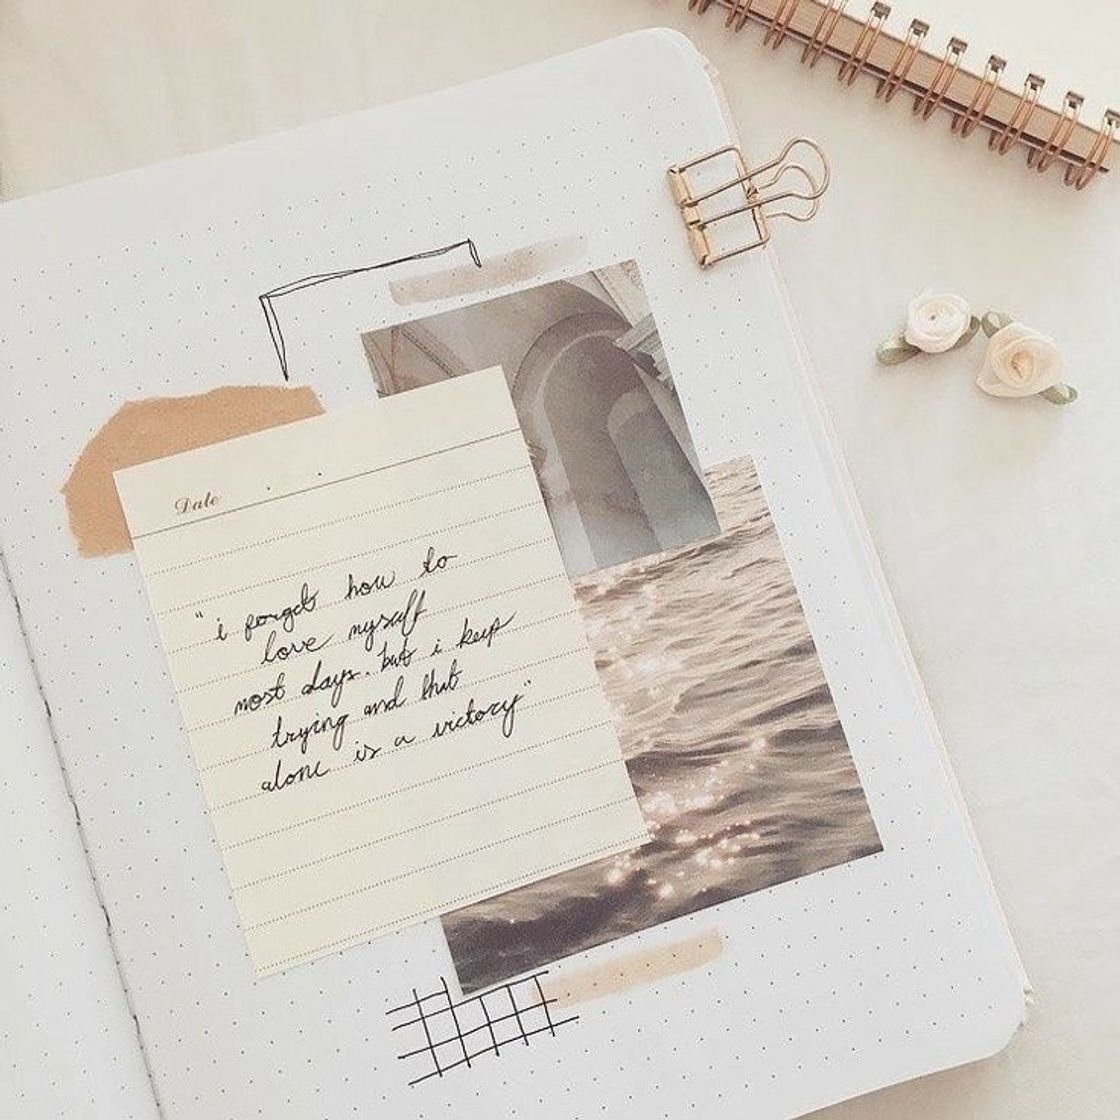 Date
"i forget how to
love myself
most days. but i keep
trying and that
alone is a victory"